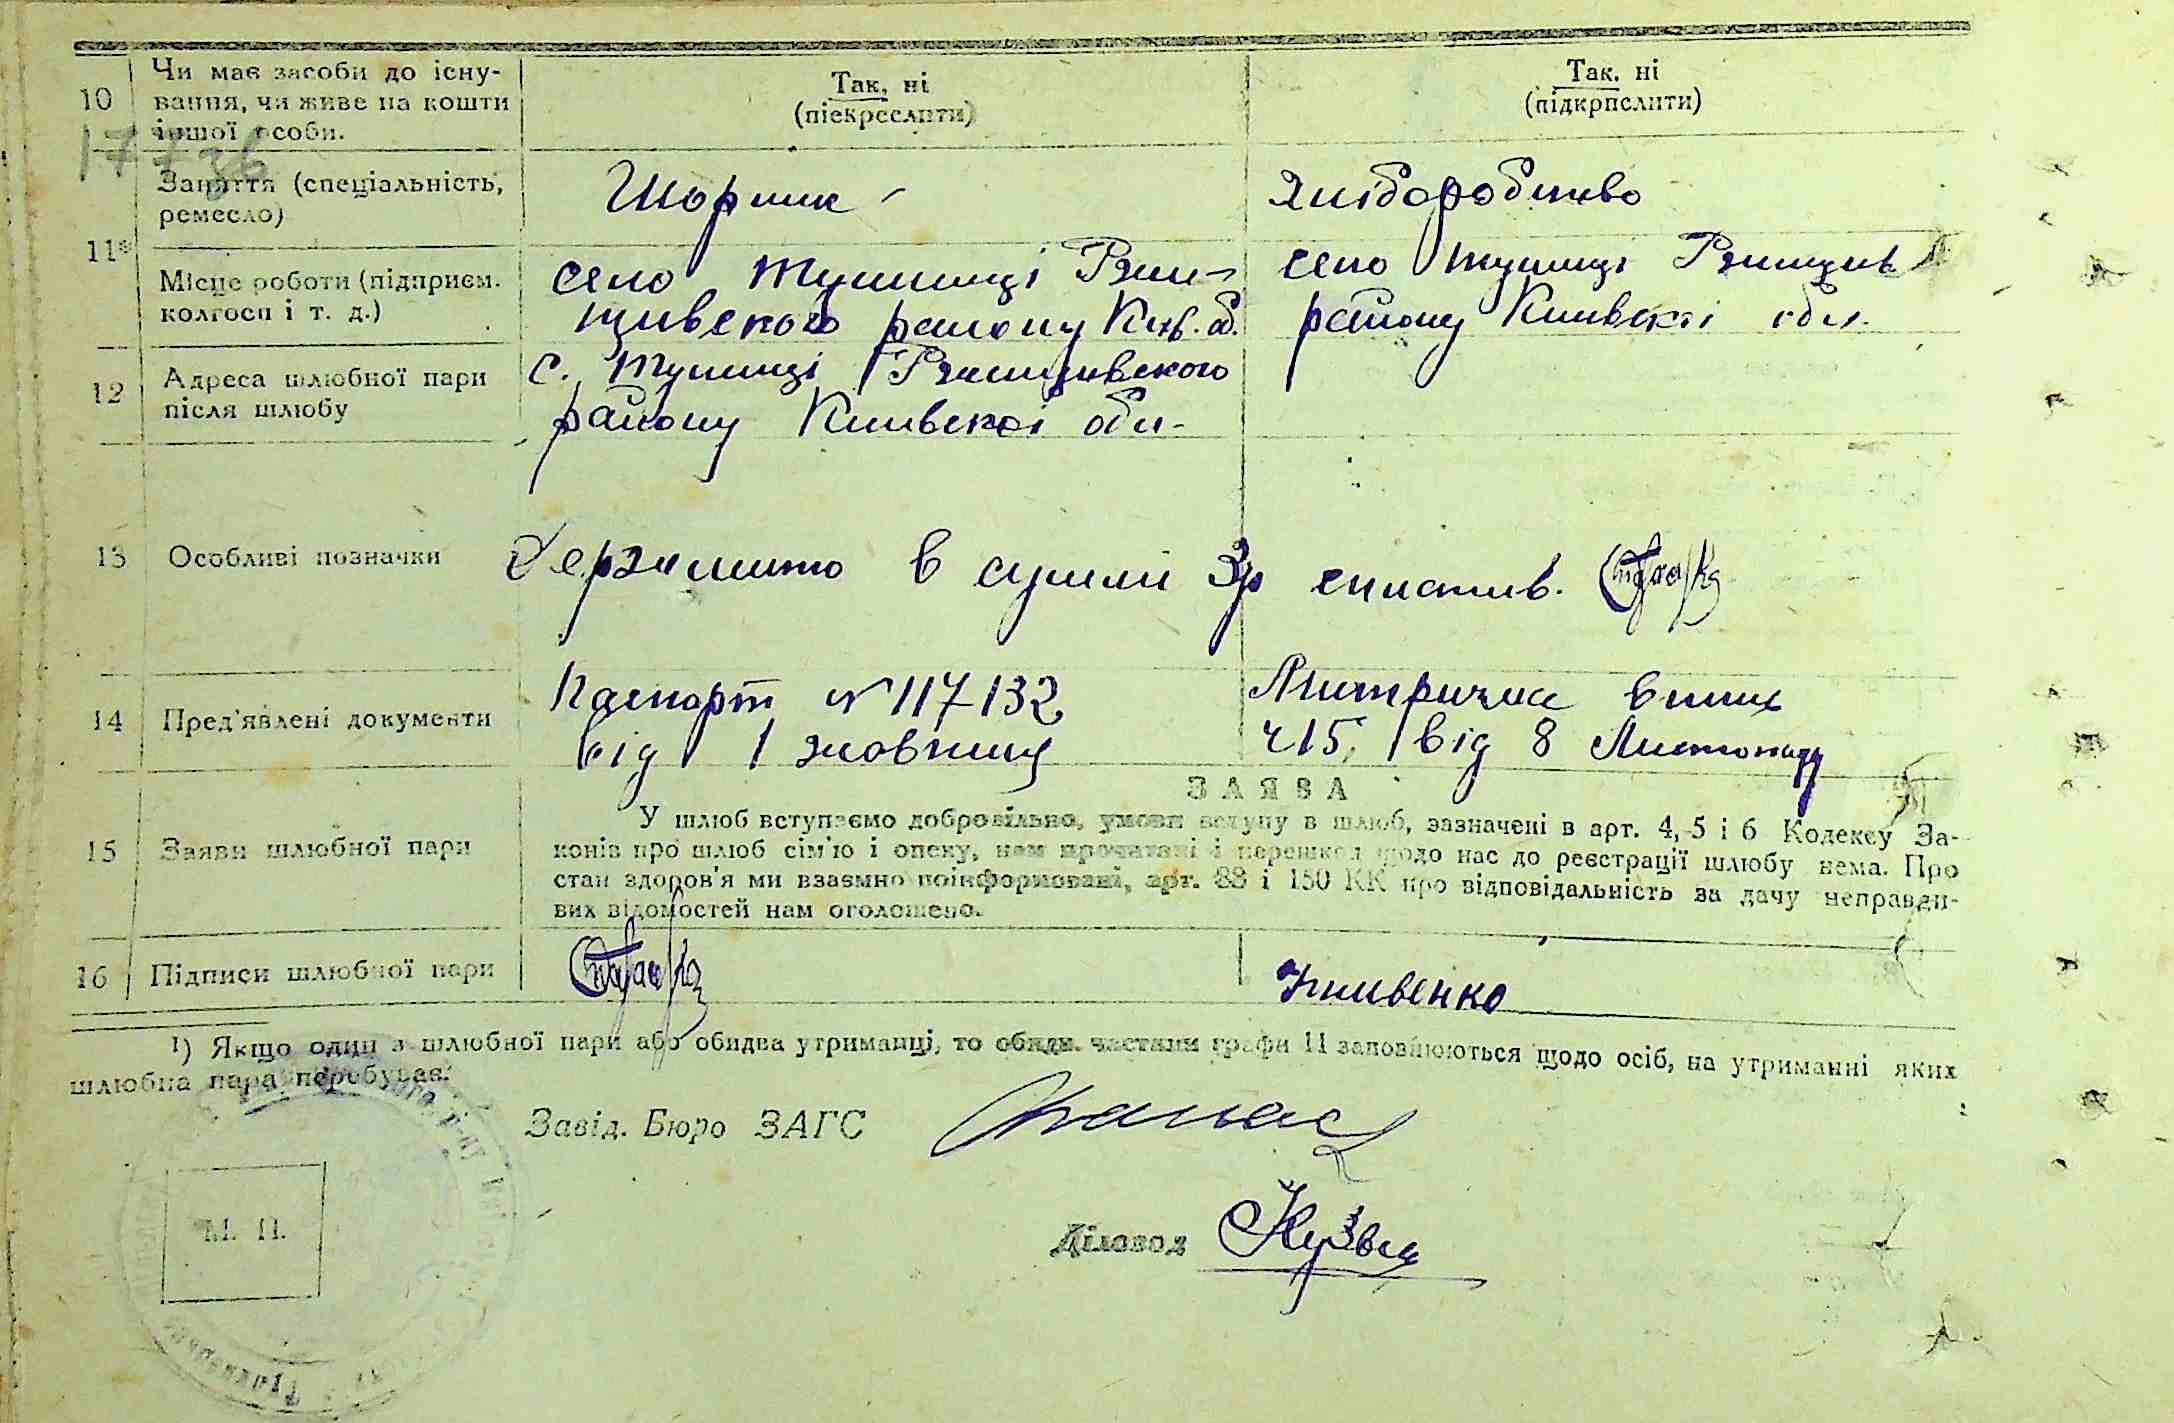 10
Чи має засоби до існу-
вання, чи живе на кошти
іншої особи.
Так, ні
(піекреслити)
Так. ні
(підкрпслити)
17736
11*
Заняття (спеціальність,
ремесло)
Шорник
Хліборобство
Місце роботи (підприєм.
колгосп і т. д.)
село Тулинці Ржи-
щивского району Київ. об.
село Тулинці Ржищив
району Київскої обл.
12
Адреса шлюбної пари
після шлюбу
с. Тулинці Ржищивского
району Київскої обл.
13
Особливі позначки
Держмито в сумі 3р сплатив.
14
Пред'явлені документи
Паспорт № 117132
від 1 жовтня
Митрична випись
ч 15 від 8 Листопаду
15
Заяви шлюбної пари
ЗАЯВА
У шлюб вступаємо добровільно, умови вступу в шлюб, зазначені в арт. 4, 5 і 6 Кодексу За-
конів про шлюб сім'ю і опеку, нам прочитані і перешкод щодо нас до реєстрації шлюбу нема. Про
стан здоров'я ми взаємно поінформовані, арт. 88 і 150 КК про відповідальність за дачу неправди-
вих відомостей нам оголошено.
16
Підписи шлюбної пари
Книвенко
¹) Якщо один з шлюбної пари або обидва утриманці, то обидві частини графи 11 заповнюються щодо осіб, на утриманні яких
шлюбна пара перебуває.
Завід. Бюро ЗАГС
М. П.
Діловод